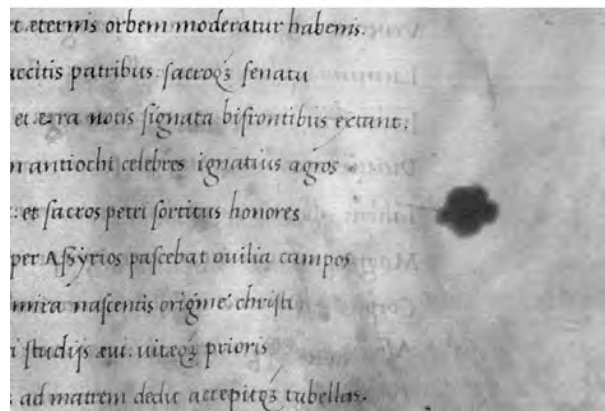 et æternis orbem moderatur habenis.
accitis patribus: sacroqꝫ senatu
et æra notis signata bifrontibus extant:
antiochi celebres ignatius agros
: et sacros petri sortitus honores
per Assyrios pascebat ouilia campos
mira nascentis origine christi
studijs æui: uitæqꝫ prioris
ad matrem dedit accepitqꝫ tabellas.